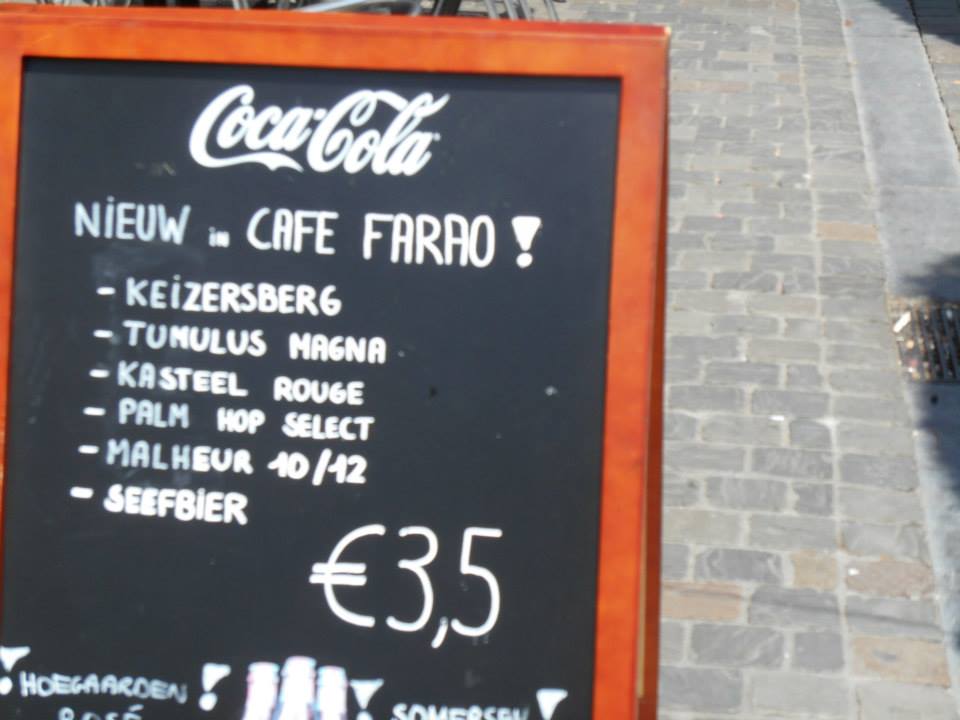 Coca-Cola
NiEUW in CAFE FARAO !
- KEiZERSBERG
- TUMULUS MAGNA
- KASTEEL ROUGE
- PALM HOP SELECT
- MALHEUR 10/12
- SEEFBiER
€3,5
! HOEGAARDEN ! ! SOMERSBY !
ROSÉ